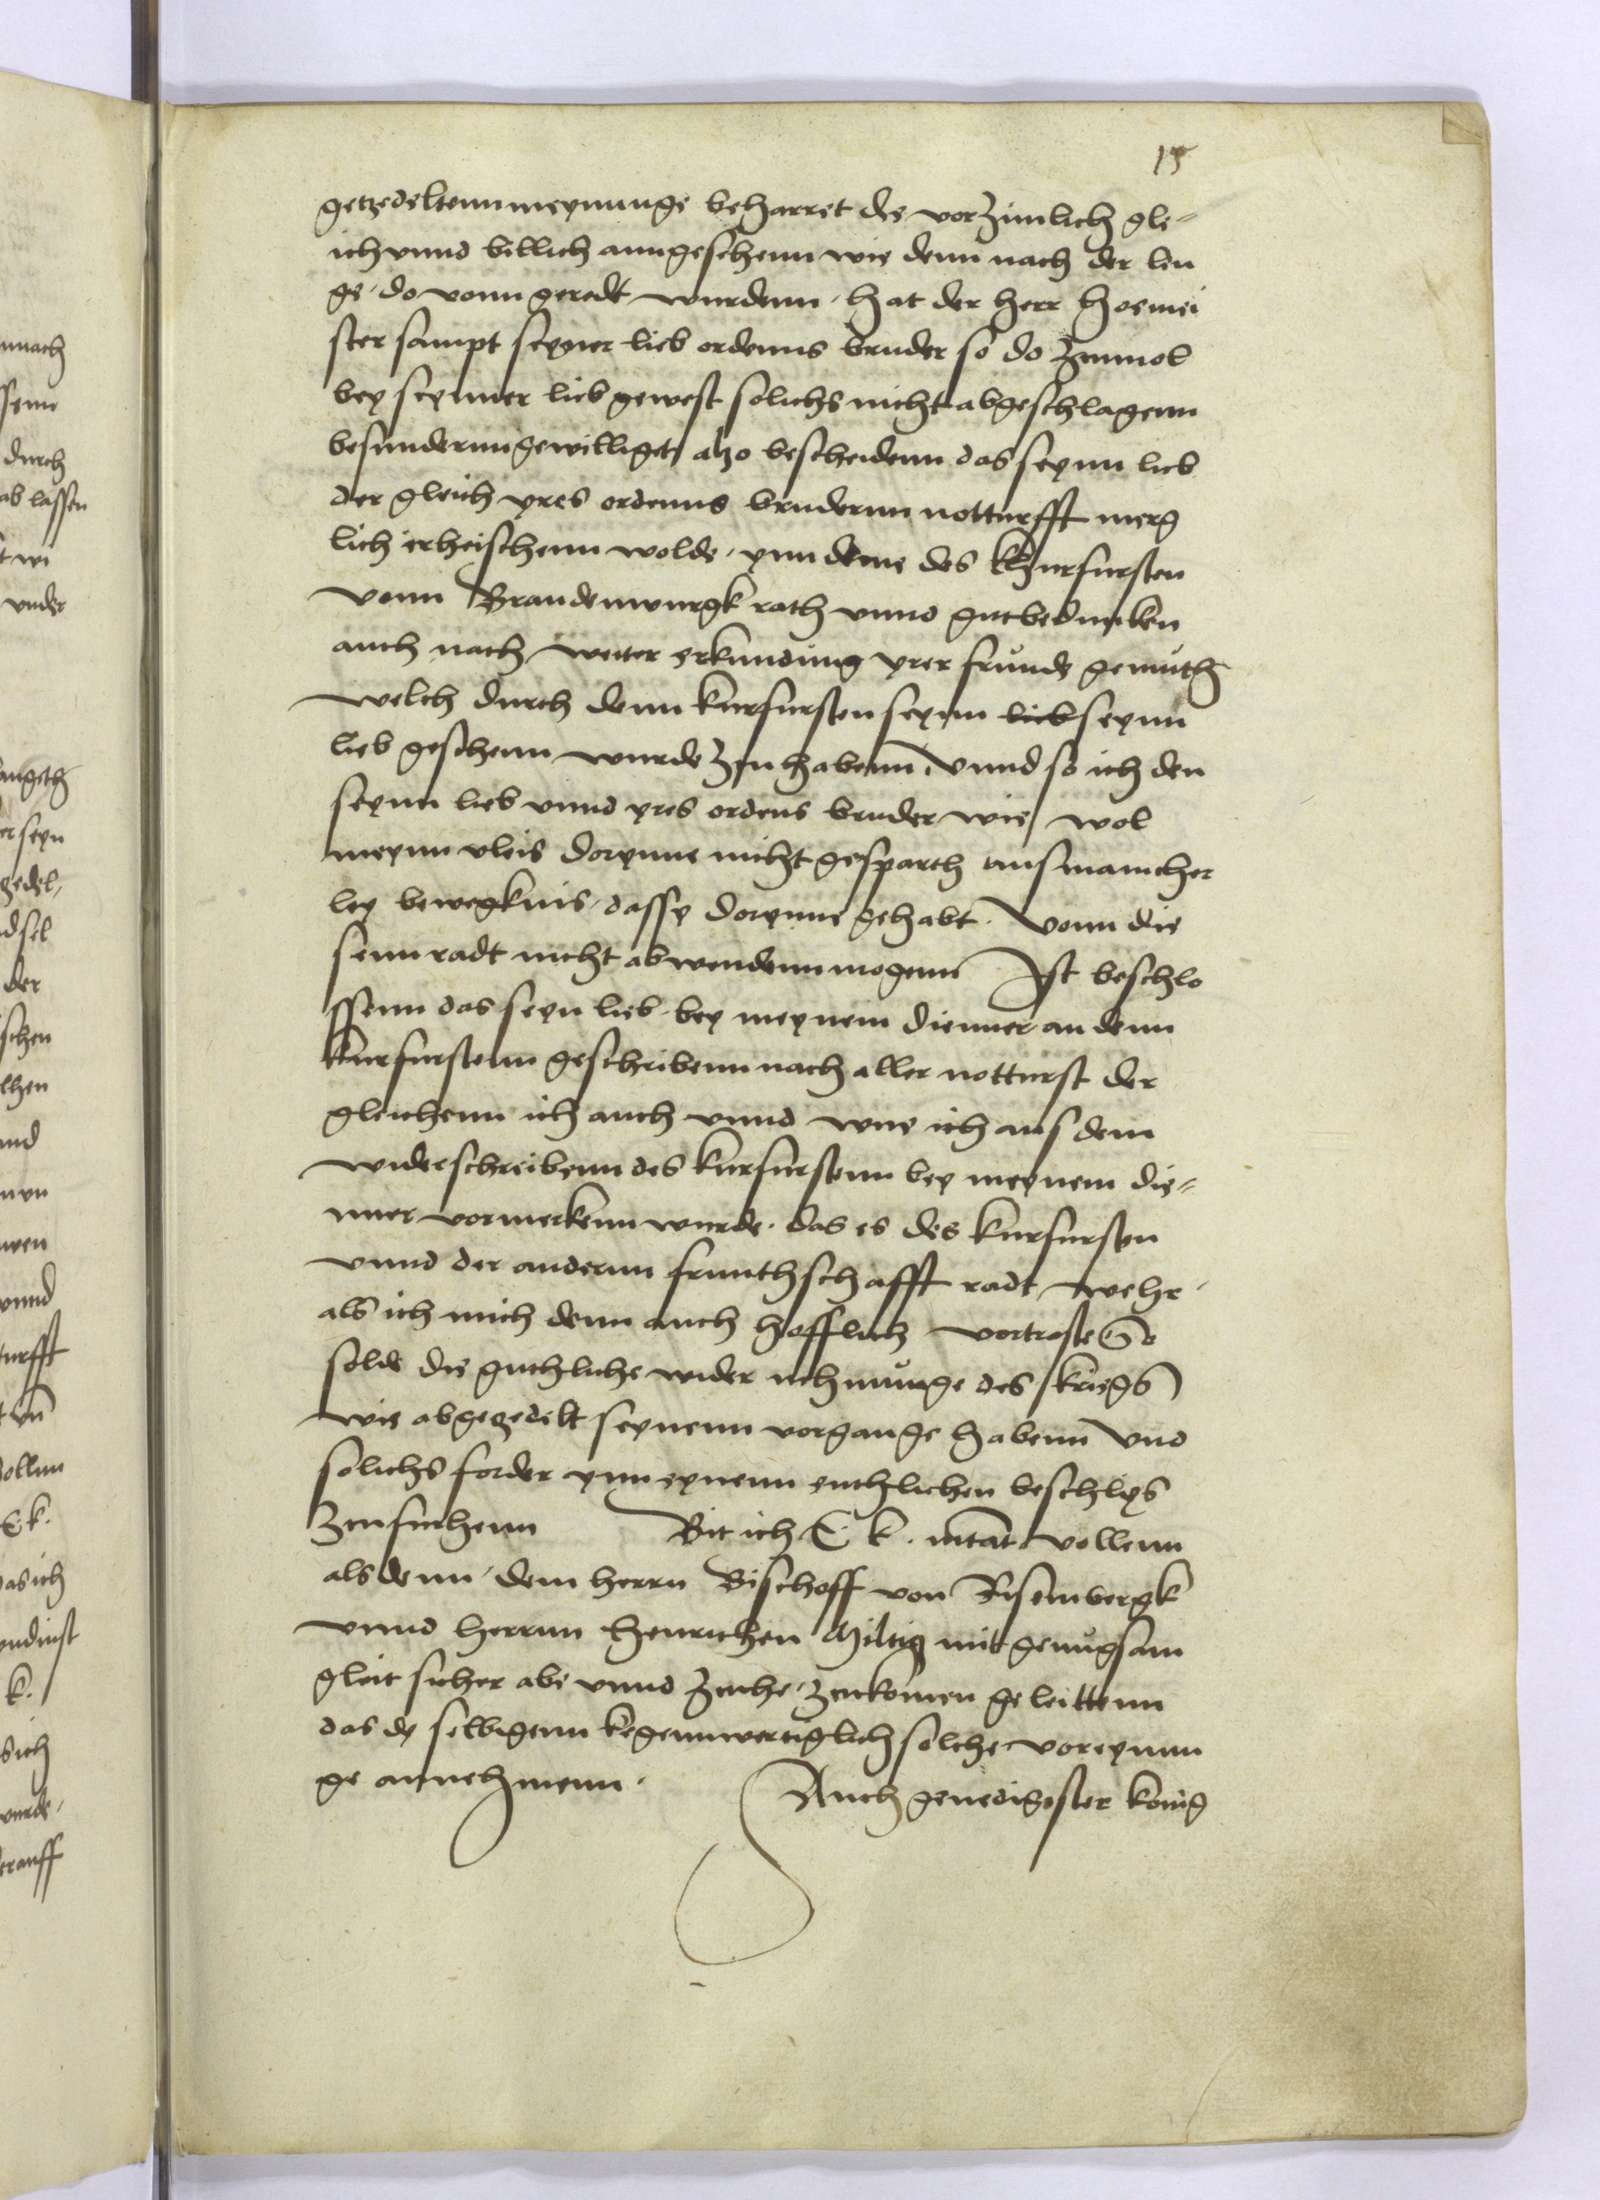 15
getzedeltenn meynunge beharret des vorzimlich gle-
ich vnnd billich anngesehenn wie denn nach der len
ge / do vonn geredt wurdenn / hat der herr hoemei
ster sampt seyner lieb ordenns bruder so do zcumol
bey seynner lieb gewest solichs nicht abgeschlagenn
besunderun gewilliget / alzo bescheidenn das seynn lieb
der gleich yres ordenns brudernn notturfft merg
lich erheischenn wolde / ynn deme des khurfursten
vonn Brandennburgk rath vnnd gutbeduncken
auch nach weiter erkundung yrer frunde gemuth
welch durch denn kurfursten seynn lieb seynn
lieb geschenn wurde zcu habenn / Vnnd so ich den
seynn lieb vnnd yres ordens bruder wie wol
meynn vleis dorynne nicht gesparth aus mancher
ley bewegknis / dassy dorynne gehabt / Vonn die
senn radt nicht abwendenn mogenn Ist beschlo
ssenn das seyn lieb bey meynem dienner an denn
kurfurstenn geschribenn nach aller notturft der
gleichenn ich auch vnnd wue ich aus dem
widerschreibenn des kurfurstenn bey meynem die-
nner vormerkenn wurde / das es des kurfursten
vnnd der andernn frunthschafft radt wehr /
als ich mich denn auch hofflich vortroste So
solde die guthliche wider nehmunge des kriegs
wie abgezedelt seynenn vorgange habenn Vnd
solichs forder ynn eynenn enthlichen beschlies
zcu furhenn Bit ich E k. mtat wollenn
als denn / dem herrn Bischoff von Risembergk
vnnd herrnn henrichen Miltiz mit genugsam
gleit sicher abe vnnd zcuhe / zcukomen geleittenn
das dy selbigenn kegennwertiglich solche voreynun
ge annehmenn /
Auch genedigester konig